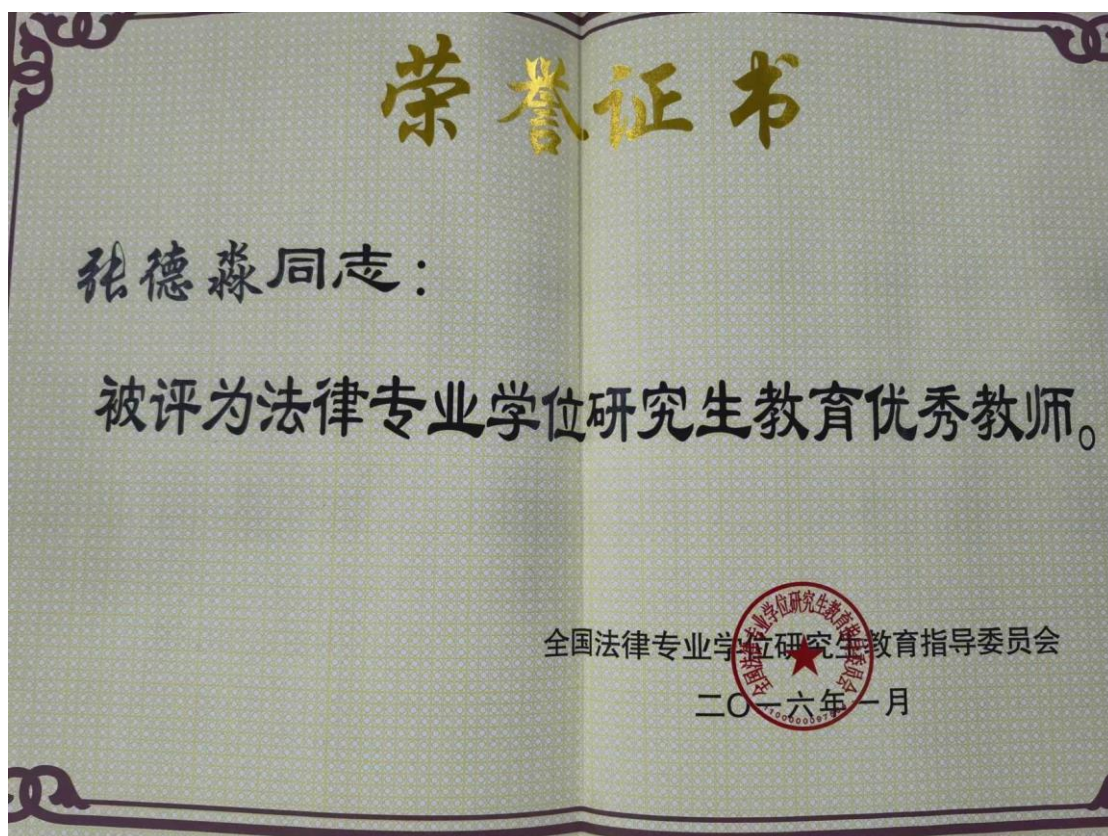 荣誉证书
张德淼同志：
被评为法律专业学位研究生教育优秀教师。
全国法律专业学位研究生教育指导委员会
二〇一六年一月
全国法律专业学位研究生教育指导委员会